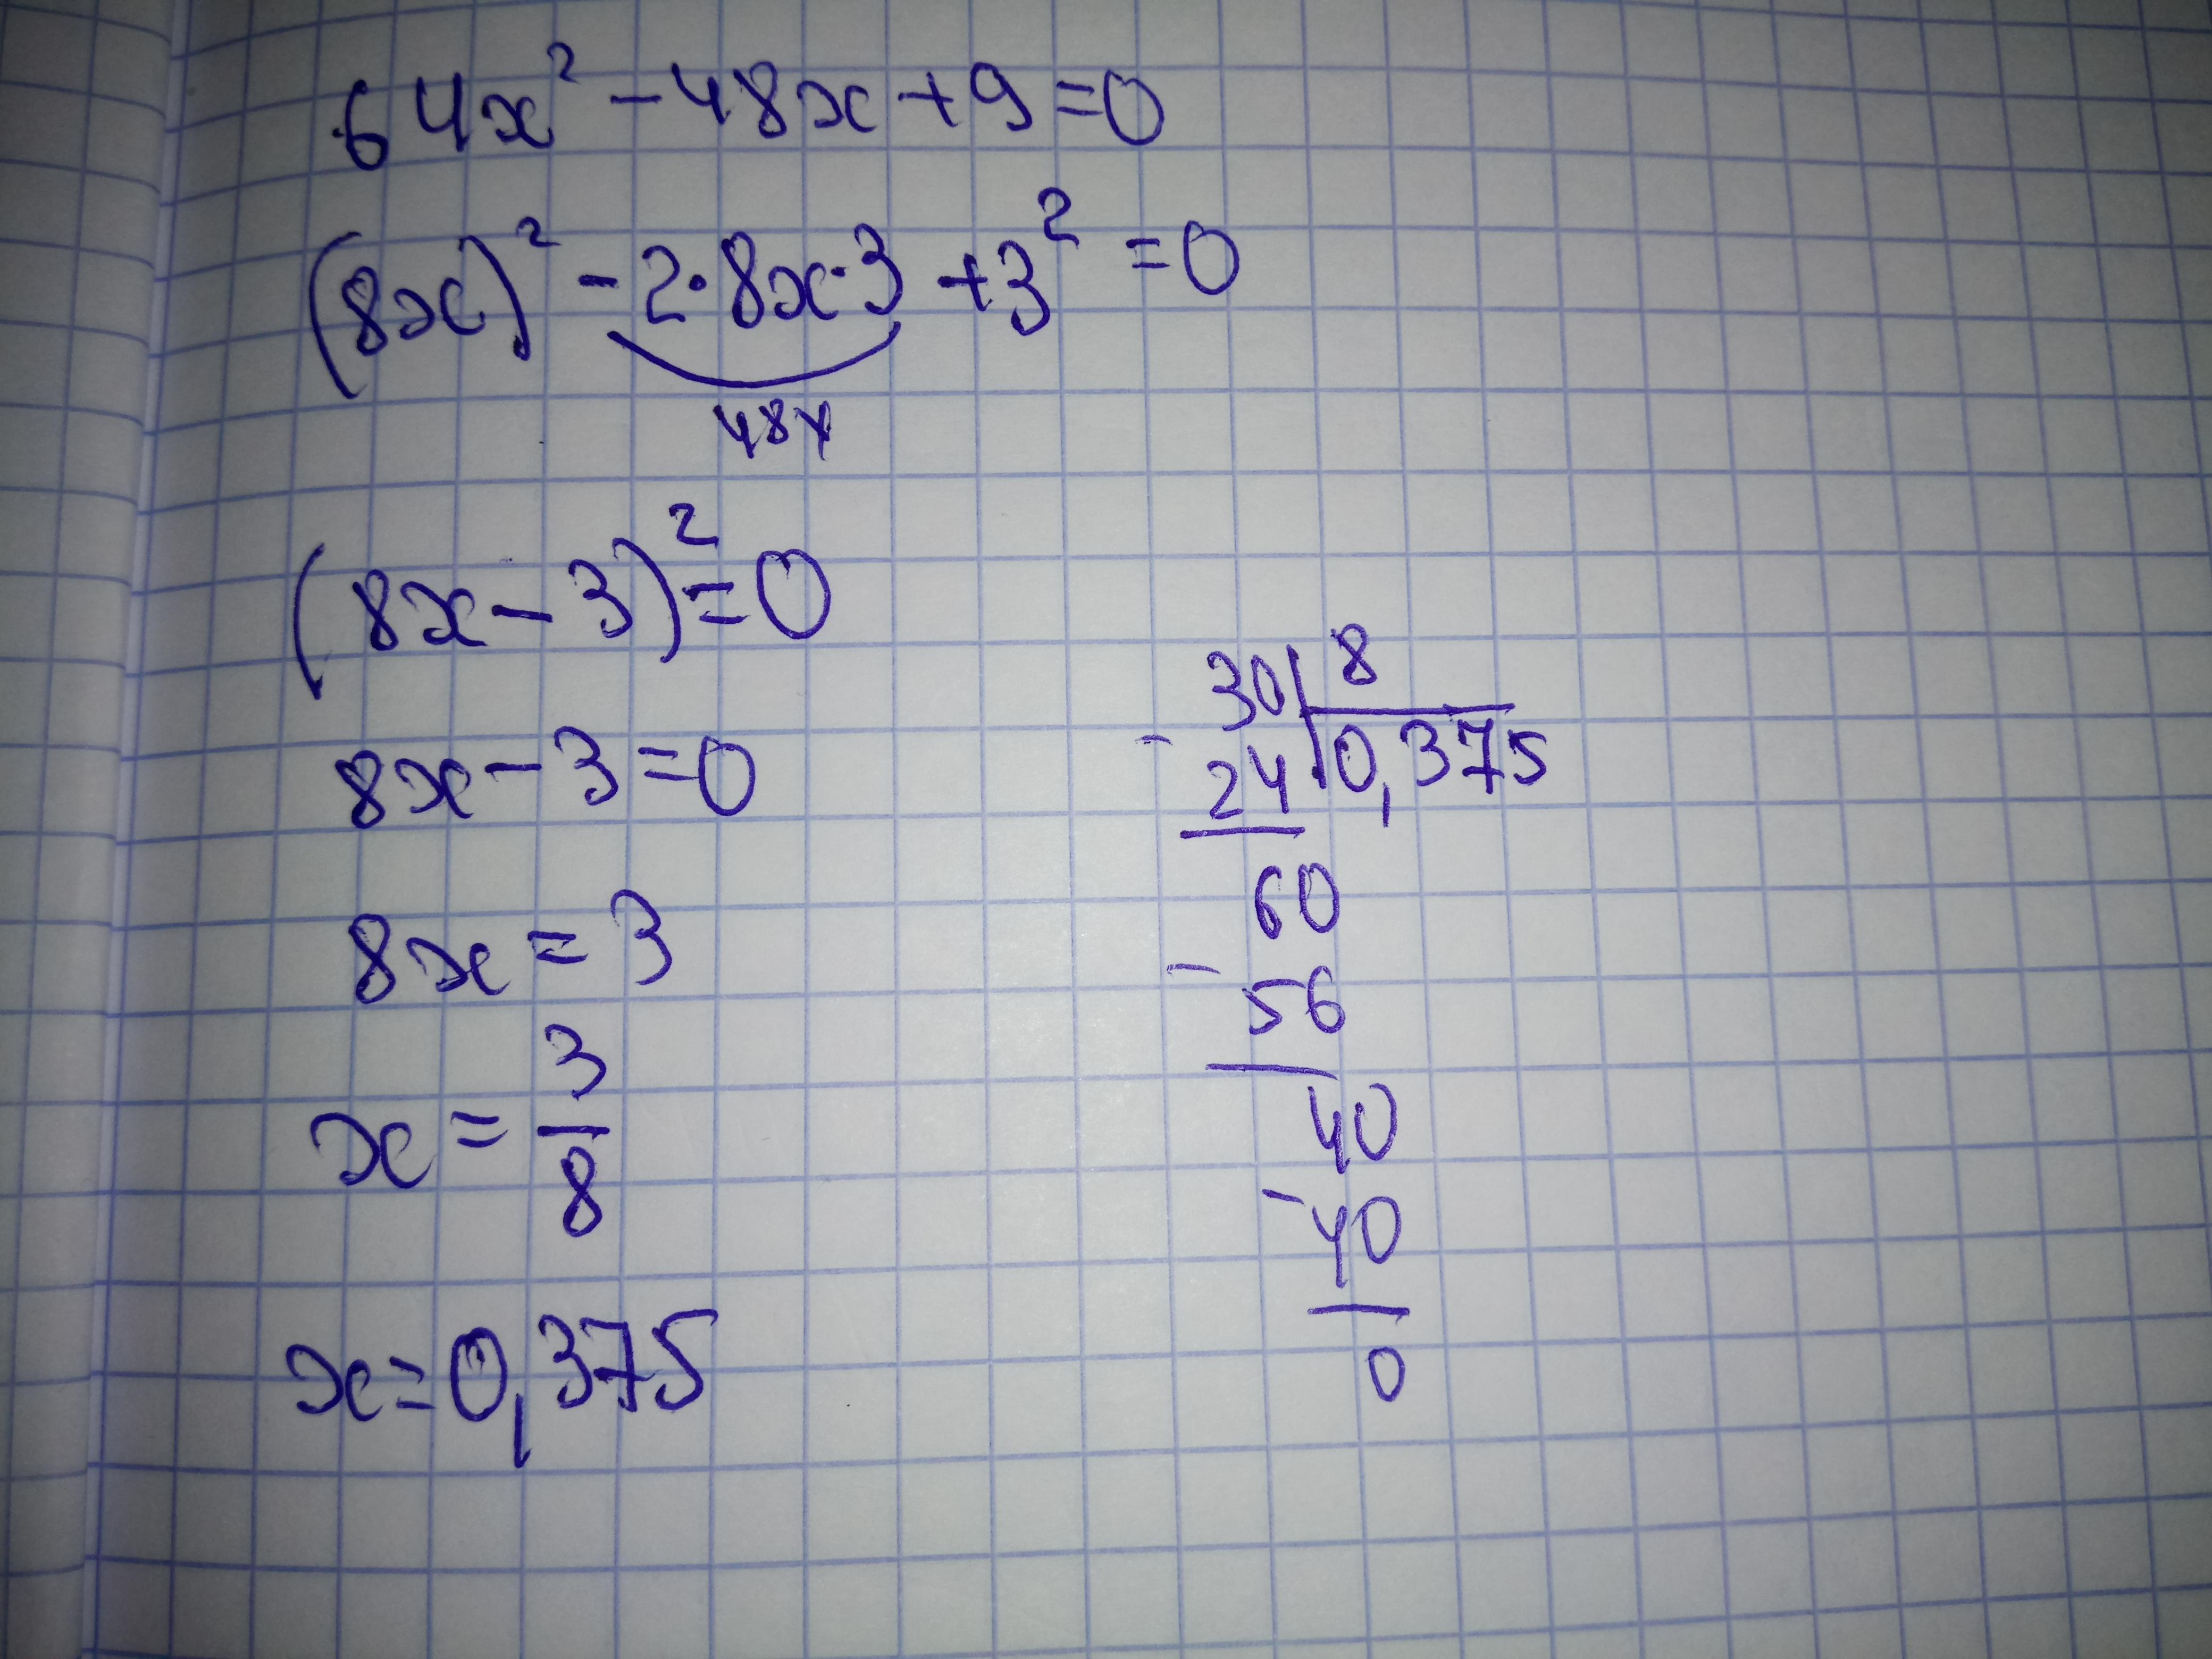 64x² - 48x + 9 = 0
(8x)² - 2·8x·3 + 3² = 0
48x
(8x - 3)² = 0
8x - 3 = 0
8x = 3
x = 3/8
x = 0,375
30 | 8
- 24 | 0,375
60
- 56
40
- 40
0